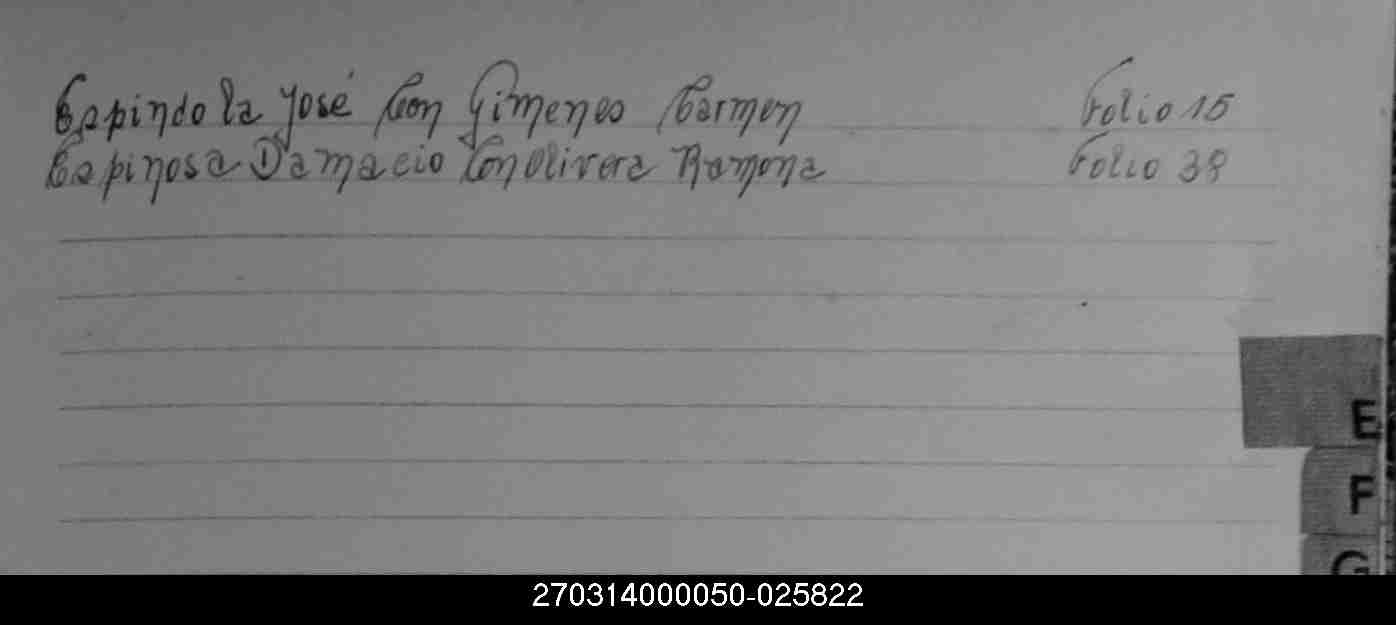 Espindola José Con Gimenes Carmen Folio 15
Espinosa Damacio Con Olivera Ramona Folio 38
E
F
G
270314000050-025822